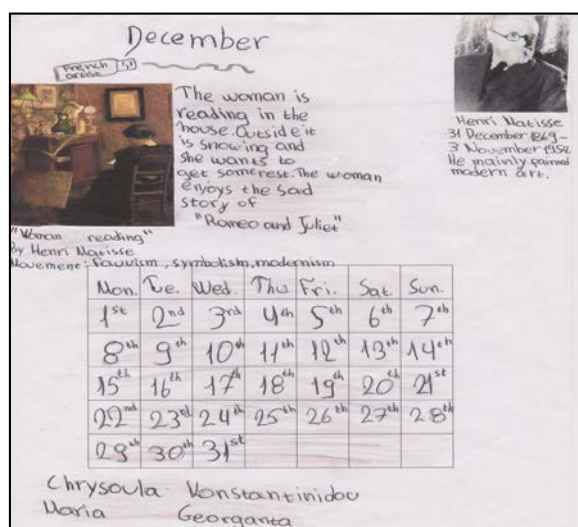 December
French
artist
The woman is
reading in the
house. Outside it
is snowing and
she wants to
get some rest. The woman
enjoys the sad
story of
"Romeo and Juliet"
Henri Matisse
31 December 1869-
3 November 1954
He mainly painted
modern art.
"Woman reading"
by Henri Matisse
Movement: fauvism, symbolism, modernism
Mon. Tue. Wed. Thu Fri. Sat. Sun.
1st 2nd 3rd 4th 5th 6th 7th
8th 9th 10th 11th 12th 13th 14th
15th 16th 17th 18th 19th 20th 21st
22nd 23rd 24th 25th 26th 27th 28th
29th 30th 31st
Chrysoula Konstantinidou
Maria Georganta